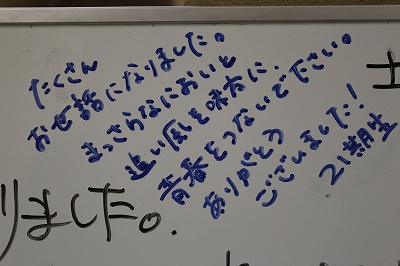 たくさん
お世話になりました。
まっさらなにおいと
追い風を味方に、
青春をつないでください。
ありがとう
ございました!
21期生
りました。
士